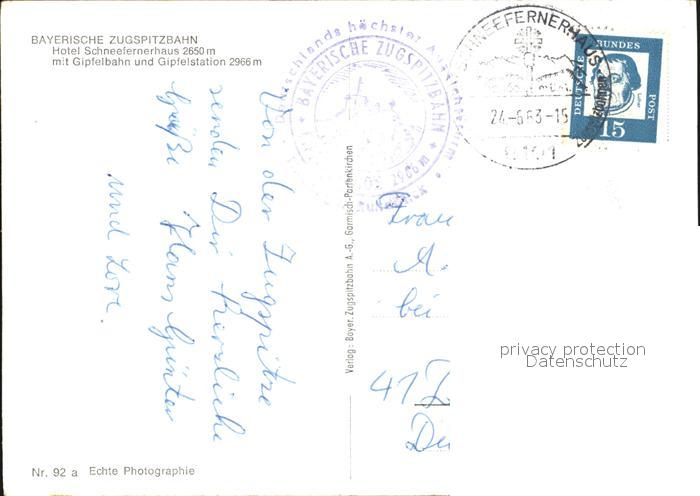 BAYERISCHE ZUGSPITZBAHN
Hotel Schneefernerhaus 2650 m
mit Gipfelbahn und Gipfelstation 2966 m
Von der Zugspitze
senden Dir herzliche
Grüße Hans Günter
und Lore.
Nr. 92 a Echte Photographie
Verlag: Bayer. Zugspitzbahn A.-G., Garmisch-Partenkirchen
Deutschlands höchster
BAYERISCHE ZUGSPITZBAHN
2966 m
SCHNEEFERNERHAUS
24-6 63-15
DEUTSCHE BUNDES POST
15
Frau
A.
bei
41
privacy protection
Datenschutz